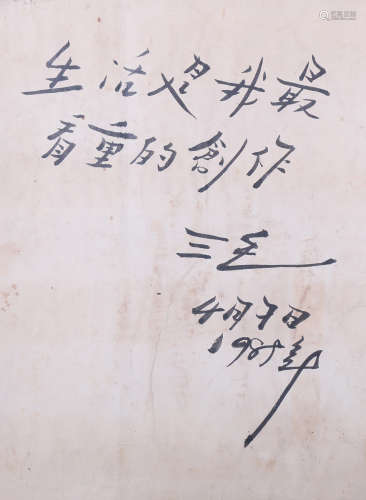 生活是我最
看重的創作
三毛
4月7日
1985年